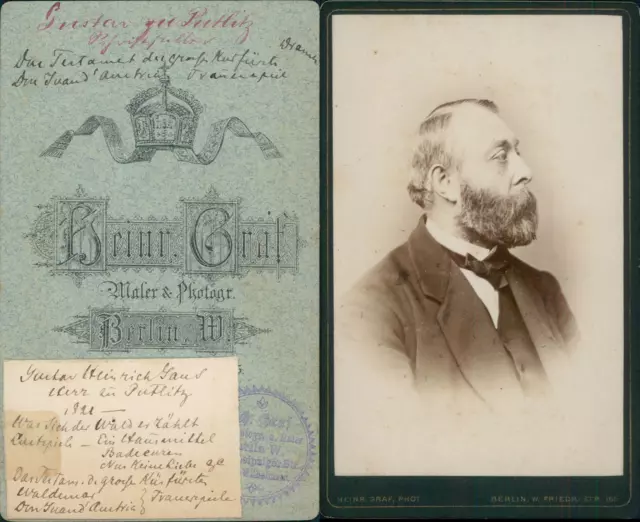 Gustav zu Putlitz
Schriftsteller
Das Testament des grossen Kurfürsten Drama
Don Juan d'Austria Trauerspiel
Heinr. Gräf
Maler & Photogr.
Berlin, W.
Gustav Heinrich Gans
Herr zu Putlitz
1821 —
Was sich der Wald erzählt
Lustspiele – Ein Hausmittel
Badecuren
Nur keine Liebe
Das Testam. d. grosse Kurfürsten
Waldemar
Don Juand Austria } Trauerspiele
HEINR. GRÄF, PHOT. BERLIN, W. FRIEDR. STR.